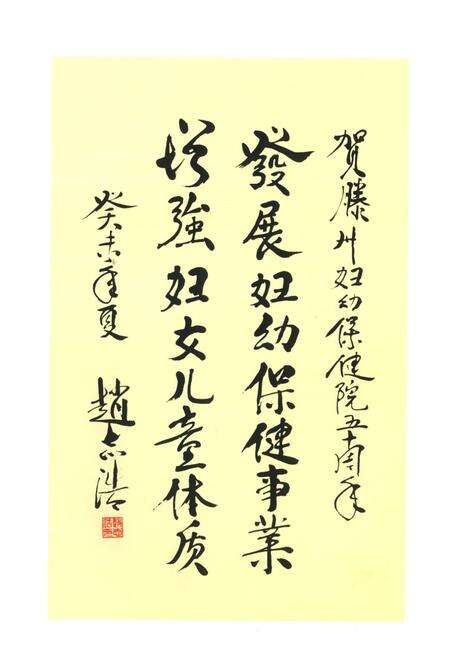 賀滕州妇幼保健院五十周年
發展妇幼保健事業
增強妇女儿童体质
癸未年夏
趙志浩